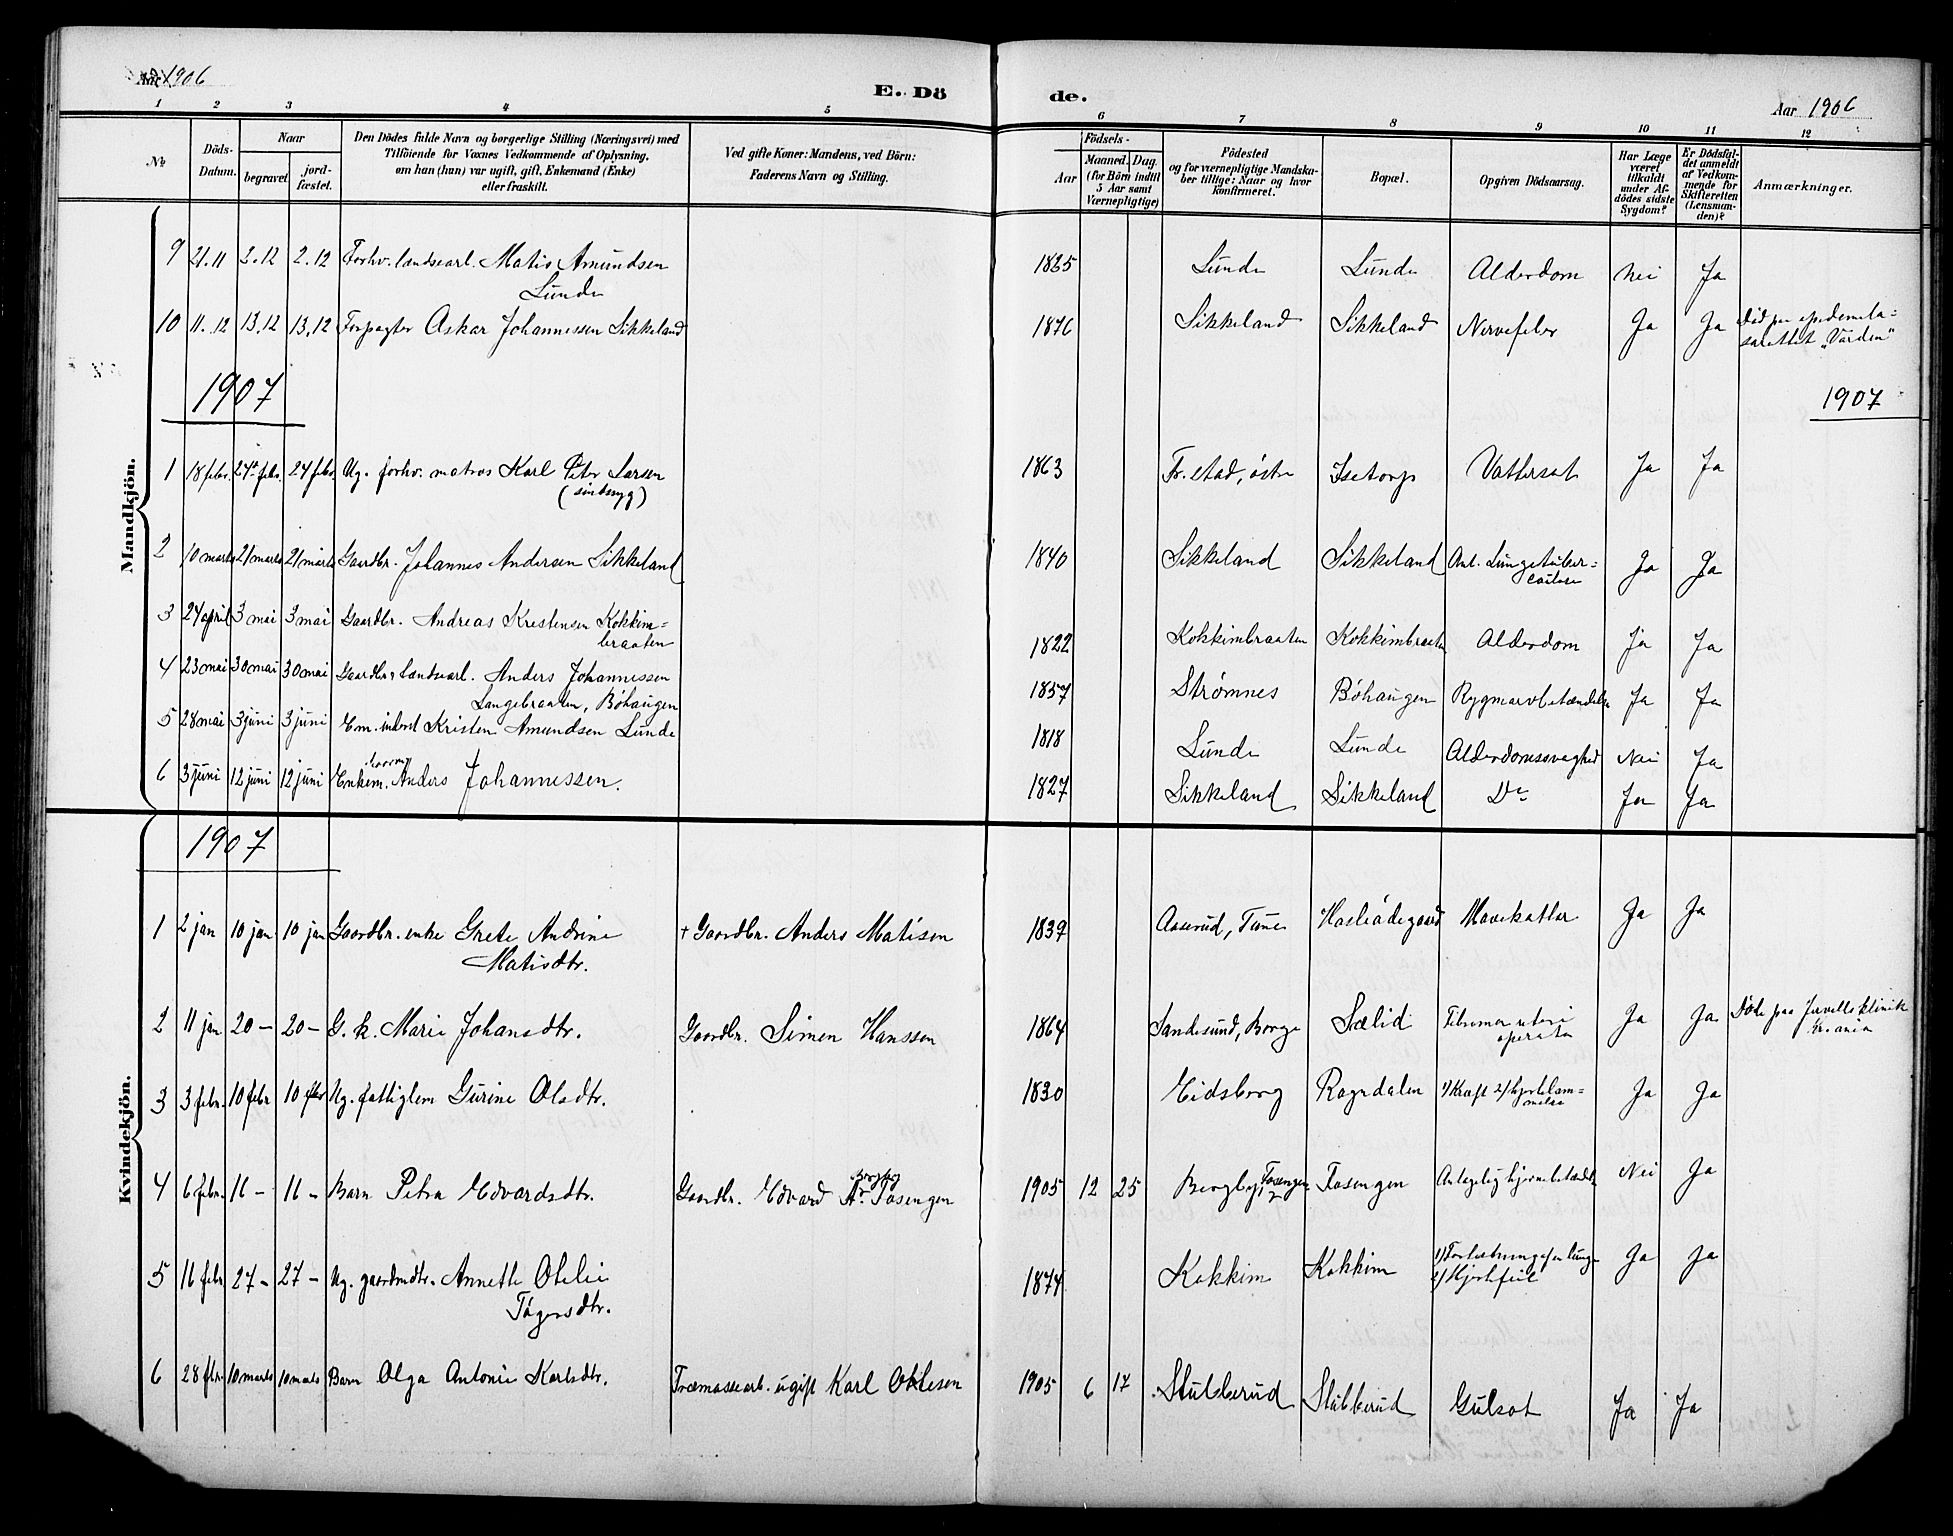 Aar 1906
E. Dö
de.
Aar 1906
1 2 3 4 5 6 7 8 9 10 11 12
№
Döds-
Datum.
Naar
begravet
jord-
fæstet.
Den Dödes fulde Navn og borgerlige Stilling (Næringsvei) med
Tilföiende for Voxnes Vedkommende af Oplysning,
om han (hun) var ugift, gift, Enkemand (Enke)
eller fraskilt.
Ved gifte Koner: Mandens, ved Börn:
Faderens Navn og Stilling.
Födsels-
Aar
Maaned. Dag.
(for Börn indtil
5 Aar samt
Værnepligtige)
Födested
og for værnepligtige Mandska-
ber tillige: Naar og hvor
konfirmeret.
Bopæl.
Opgiven Dödsaarsag.
Har Læge
været
tilkaldt
under Af-
dödes sidste
Sygdom?
Er Dödsfal-
det anmeldt
af Vedkom-
mende for
Skifteretten
(Lensman-
den)?
Anmærkninger.
Mandkjön.
9 21.11 2.12 2.12 Forhv. landsearb. Matis Amundsen 1825 Lunde Lunde Alderdom Nei Ja
Lunde
10 11.12 13.12 13.12 Forpagter Askar Johannessen Sikkeland 1876 Sikkeland Sikkeland Nervefeber Ja Ja Död paa epidemila=
sarettet "Varden"
1907
1907
1 18 febr. 24 febr. 24 febr. Ug. forhv. matros Karl Peter Larsen 1863 Fr.stad, östre Isetorp Vattersot Ja Ja
(sindssyg)
2 10 marts 21 marts 21 marts Gaardbr. Johannes Andersen Sikkeland 1840 Sikkeland Sikkeland Ant. Lungetuber=
culose Ja Ja
3 24 april 3 mai 3 mai Gaardbr. Andreas Kristensen Kokkim=
braaten 1822 Kokkimbraaten Kokkimbraaten Alderdom Ja Ja
4 23 mai 30 mai 30 mai Gaardbr. & landsearb. Anders Johannessen
Langebraaten, Böhaugen 1857 Strømnes Böhaugen Rygmarvbetændelse Ja Ja
5 28 mai 3 juni 3 juni Em. inderst Kristen Amundsen Lunde 1818 Lunde Lunde Alderdomssvaghed Nei Ja
6 3 juni 12 juni 12 juni Enkem. Anders Johannessen. 1827 Sikkeland Sikkeland Do Ja Ja
Kvindekjön.
1907
1 2 jan 10 jan 10 jan Gaardbr. enke Grete Andrine
Matisdtr. + Gaardbr. Anders Matisen 1839 Aaserud, Tune Hasleödegaard Mavekatar Ja Ja
2 11 jan 20 – 20 – G. k. Marie Johansdtr. Gaardbr. Simen Hanssen 1864 Sandesund, Borge Sælid Fibroma uteri
operata Ja Ja Döde paa Jervells klinik
Kr.ania
3 3 febr. 10 febr 10 febr Ug. fattiglem Gurine Olsdtr. 1830 Eidsborg Rogndalen 1/ Kræft 2/ hjertelam=
melse Ja Ja
4 6 febr. 16 – 16 – Barn Petra Edvardsdtr. Gaardbr. Edvard Ar. Tosengen 1905 12 25 Bergby, Tosengen Tosengen Antagelig hjernebetændelse Nei Ja
5 16 febr 27 – 27 – Ug. gaardmdtr. Annette Otelie
Tögersdtr. 1874 Kokkim Kokkim 1/ Fortetning af en lunge
2/ Hjertfeil Ja Ja
6 28 febr. 10 marts 10 marts Barn Olga Antonie Karlsdtr. Træmassearb. ugift Karl Ottesen 1905 6 17 Stulsberud Stubberud Gulsot Ja Ja